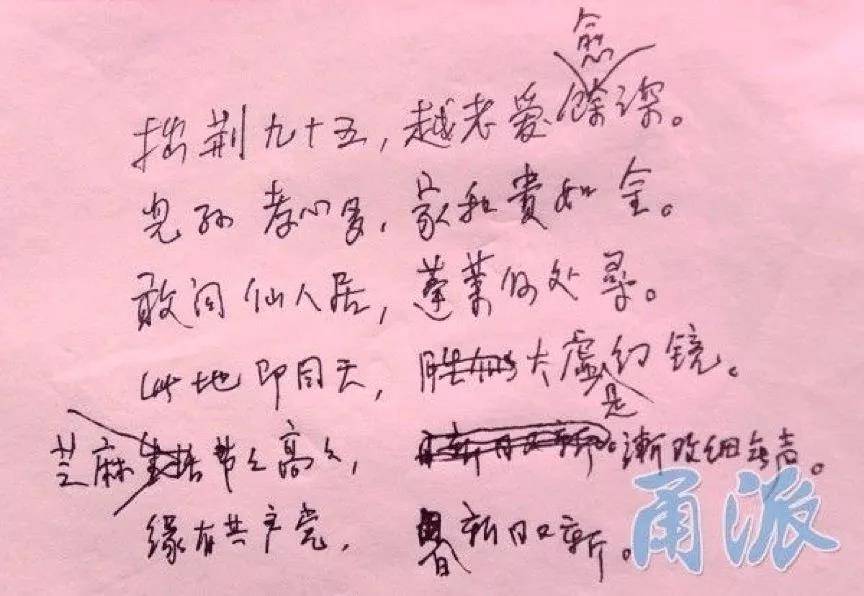 愈
拙荆九十五，越老爱深。
儿孙孝心多，家和贵如金。
敢问仙人居，蓬莱何处寻。
此地即同天，太虚幻镜。
是
芝麻节节高，渐改细无声。
缘有共产党，日新日又新。
甬派